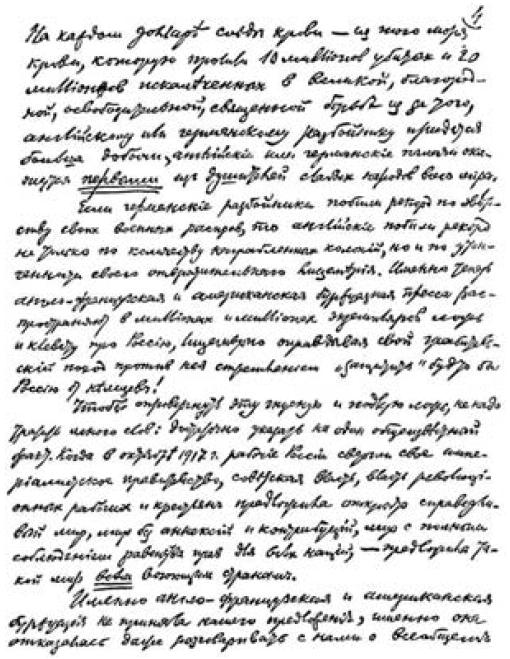 4
На каждом долларѣ слѣды крови — из того моря
крови, которую пролили 10 миллионов убитых и 20
миллионов искалѣченных в великой, благород-
ной, освободительной, священной борьбѣ из за того,
английскому или германскому разбойнику придется
больше добычи, английскіе или германскіе палачи ока-
жутся первыми из душителей слабых народов всего міра.
Если германскіе разбойники побили рекорд по звѣр-
ству своих военных расправ, то английскіе побили рекорд
не только по количеству награбленных колоній, но и по утон-
ченности своего отвратительного лицемѣрія. Именно теперь
англо-французская и американская буржуазная пресса рас-
пространяет в миллионах и миллионах экземпляров ложь
и клевету про Россію, лицемѣрно оправдывая свой грабитель-
скій поход против нея стремленіем „защитить“ будто бы
Россію от нѣмцев!
Чтобы опровергнуть эту гнусную и подлую ложь, не надо
тратить много слов: достаточно указать на один общеизвѣстный
факт. Когда в октябрѣ 1917 г. рабочіе Россіи свергли свое импе-
ріалистское правительство, совѣтская власть, власть революці-
онных рабочих и крестьян предложила открыто справедли-
вый мир, мир без аннексій и контрибуцій, мир с полным
соблюденіем равенства прав для всѣх націй, — предложила та-
кой мир всѣм воюющим странам.
Именно англо-французская и американская
буржуазія не приняла нашего предложенія, именно она
отказалась даже разговаривать с нами о всеобщем